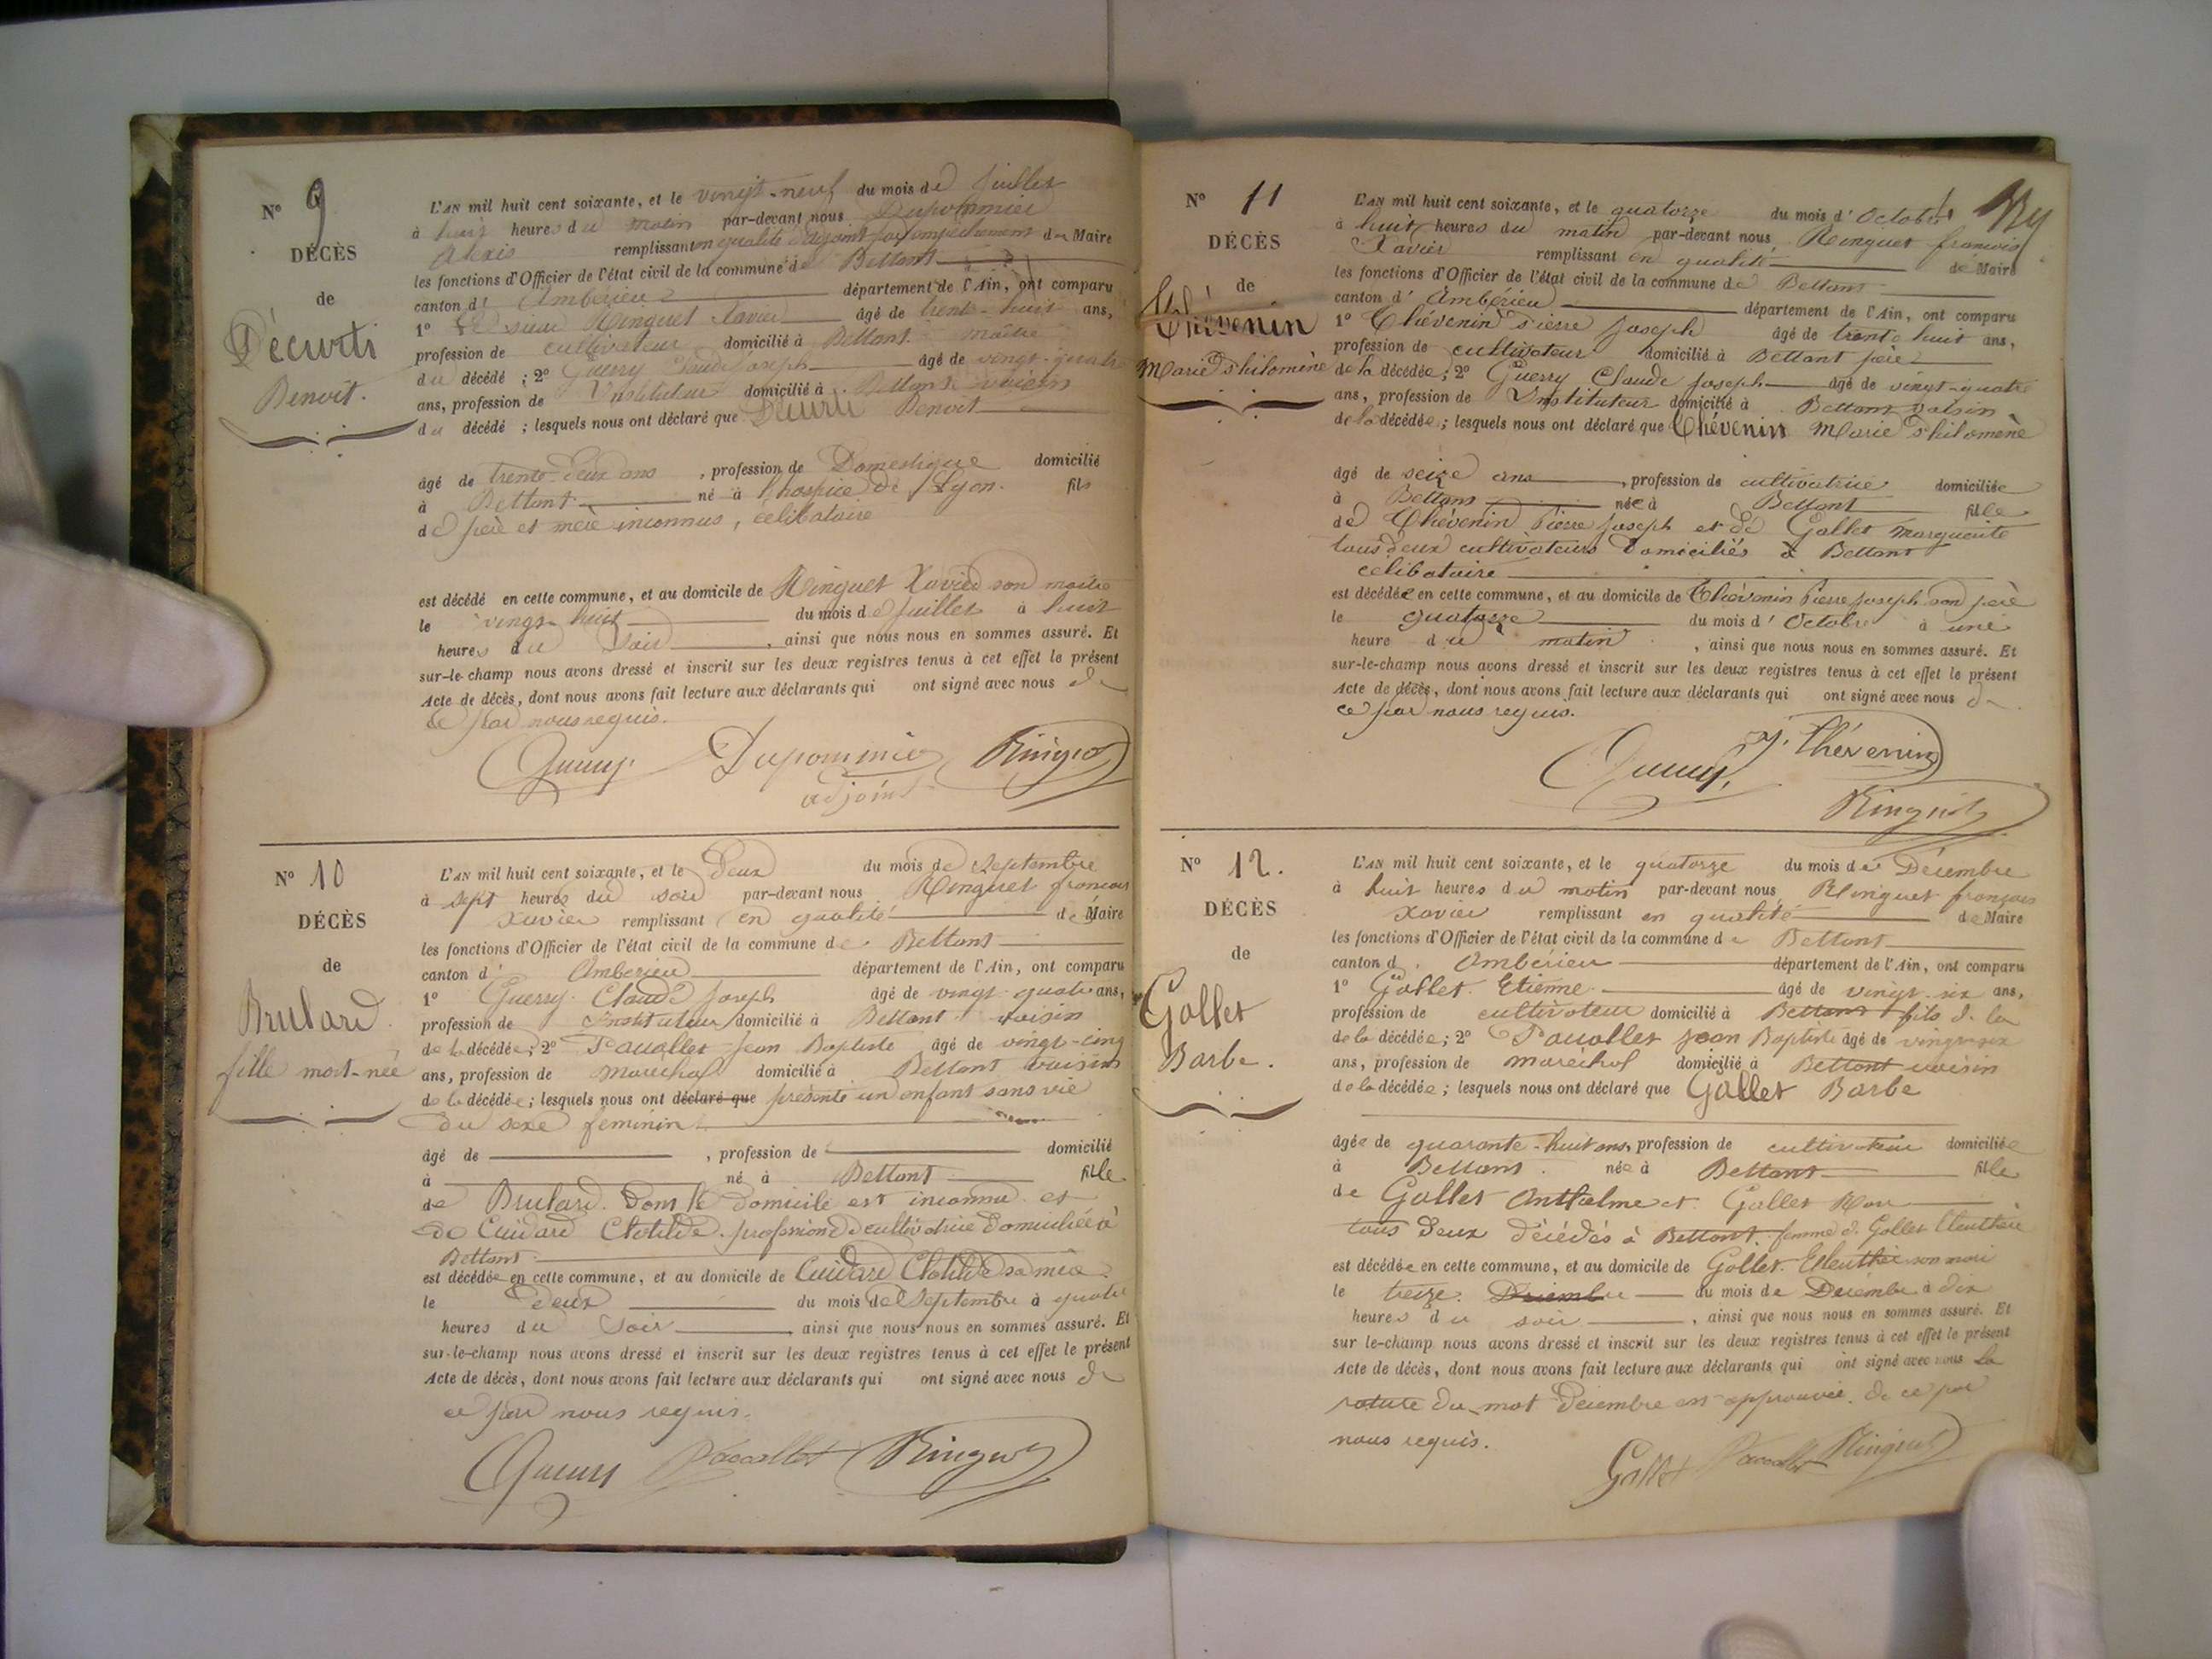 N° 9
DÉCÈS
de
Décurti
Benoit.
L'AN mil huit cent soixante, et le vingt-neuf du mois de Juillet
à huit heures du matin par-devant nous Dupommier
Alexis remplissant en qualité d'adjoint par empêchement du Maire
les fonctions d'Officier de l'état civil de la commune de Bettant
canton d' Ambérieu département de l'Ain, ont comparu
1° Le sieur Ringuet Xavier âgé de trente-huit ans,
profession de cultivateur domicilié à Bettant maître
du décédé ; 2° Guerry Claude Joseph âgé de vingt-quatre
ans, profession de Instituteur domicilié à Bettant voisin
du décédé ; lesquels nous ont déclaré que Benoit
âgé de trente-deux ans , profession de Domestique domicilié
à Bettant né à l'hospice de Lyon. fils
de père et mère inconnus, célibataire
est décédé en cette commune, et au domicile de Ringuet Xavier son maître
le vingt-huit du mois de Juillet à huit
heures du soir , ainsi que nous nous en sommes assuré. Et
sur-le-champ nous avons dressé et inscrit sur les deux registres tenus à cet effet le présent
Acte de décès, dont nous avons fait lecture aux déclarants qui ont signé avec nous de
ce par nous requis.
Guerry Dupommier Ringuet
adjoint
N° 10
DÉCÈS
de
Brulard
fille mort-née
L'AN mil huit cent soixante, et le Deux du mois de Septembre
à sept heures du soir par-devant nous Ringuet françois
Xavier remplissant en qualité de Maire
les fonctions d'Officier de l'état civil de la commune de Bettant
canton d' Ambérieu département de l'Ain, ont comparu
1° Guerry Claude Joseph âgé de vingt-quatre ans,
profession de Instituteur domicilié à Bettant voisin
de la décédée; 2° Pavallet Jean Baptiste âgé de vingt-cinq
ans, profession de Maréchal domicilié à Bettant voisin
de la décédée; lesquels nous ont déclaré que présenté un enfant sans vie
du sexe féminin
âgé de , profession de domicilié
à né à Bettant fille
de Brulard dont le domicile est inconnu et
de Cuidard Clotilde profession de cultivatrice domiciliée à
Bettant
est décédée en cette commune, et au domicile de Cuidard Clotilde sa mère
le deux du mois de Septembre à quatre
heures du soir , ainsi que nous nous en sommes assuré. Et
sur-le-champ nous avons dressé et inscrit sur les deux registres tenus à cet effet le présent
Acte de décès, dont nous avons fait lecture aux déclarants qui ont signé avec nous de
ce par nous requis.
Guerry Ringuet
N° 11
DÉCÈS
de
Thévenin
Marie Philomène
L'AN mil huit cent soixante, et le quatorze du mois d' Octobre
à huit heures du matin par-devant nous Ringuet françois
Xavier remplissant en qualité de Maire
les fonctions d'Officier de l'état civil de la commune de Bettant
canton d' Ambérieu département de l'Ain, ont comparu
1° Thévenin Pierre Joseph âgé de trente huit ans,
profession de cultivateur domicilié à Bettant père
de la décédée; 2° Guerry Claude Joseph âgé de vingt-quatre
ans, profession de Instituteur domicilié à Bettant voisin
de la décédée; lesquels nous ont déclaré que Thévenin Marie Philomène
âgé de seize ans , profession de cultivatrice domiciliée
à Bettant née à Bettant fille
de Thévenin Pierre Joseph et de Gallet Marguerite
tous deux cultivateurs domiciliés à Bettant
célibataire
est décédée en cette commune, et au domicile de Thévenin Pierre Joseph son père
le quatorze du mois d' Octobre à une
heure du matin , ainsi que nous nous en sommes assuré. Et
sur-le-champ nous avons dressé et inscrit sur les deux registres tenus à cet effet le présent
Acte de décès, dont nous avons fait lecture aux déclarants qui ont signé avec nous de
ce par nous requis.
Guerry P. Thévenin
Ringuet
N° 12.
DÉCÈS
de
Gallet
Barbe.
L'AN mil huit cent soixante, et le quatorze du mois de Décembre
à huit heures du matin par-devant nous Ringuet françois
Xavier remplissant en qualité de Maire
les fonctions d'Officier de l'état civil de la commune de Bettant
canton d' Ambérieu département de l'Ain, ont comparu
1° Gallet Etienne âgé de vingt-six ans,
profession de cultivateur domicilié à Bettant fils de la
de la décédée; 2° Pavallet Jean Baptiste âgé de vingt-six
ans, profession de maréchal domicilié à Bettant voisin
de la décédée; lesquels nous ont déclaré que Gallet Barbe
âgée de quarante-huit ans, profession de cultivateur domiciliée
à Bettant. née à Bettant fille
de Gallet Anthelme et Gallet
tous deux décédés à Bettant. femme de Gallet Eleuthère
est décédée en cette commune, et au domicile de Gallet Eleuthère son mari
le treize Décembre du mois de Décembre à dix
heures du soir , ainsi que nous nous en sommes assuré. Et
sur le-champ nous avons dressé et inscrit sur les deux registres tenus à cet effet le présent
Acte de décès, dont nous avons fait lecture aux déclarants qui ont signé avec nous La
rature du mot Décembre est approuvée. de ce par
nous requis.
Gallet Ringuet